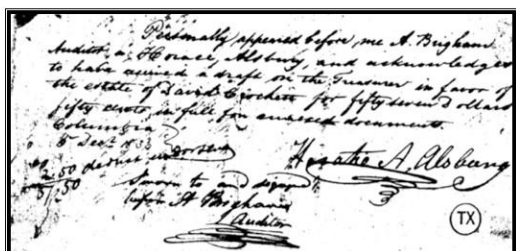 Personally appeared before, me A. Brigham
Auditor a, Horace, Alsbury, and acknowledged
to have received a draft on the Treasurer in favor of
the estate of David Crockett for fifty seven Dollars
fifty cents, in full for annexed document.
Columbia
6 Decr 183
2.50 deduct
57.50
Horatio A. Alsbury
Sworn to and signed
before A Brigham
Auditor
TX